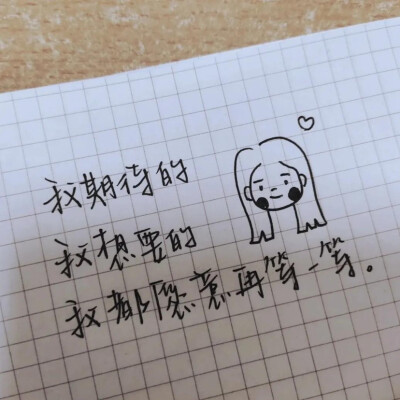 我期待的
我想要的
我都愿意再等一等。